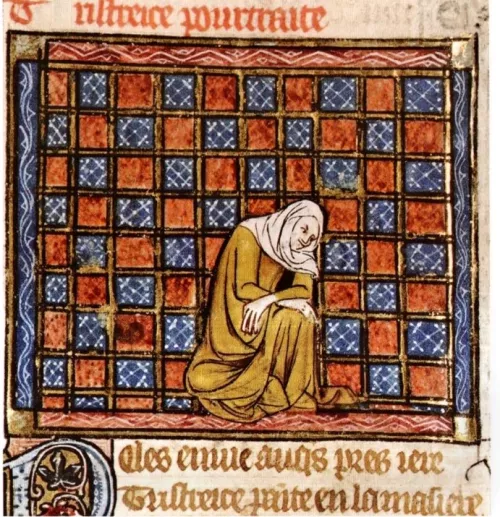 Tristreice pourtraite
Deles enuie auqs pres iere
Tristreice paite en la masiere